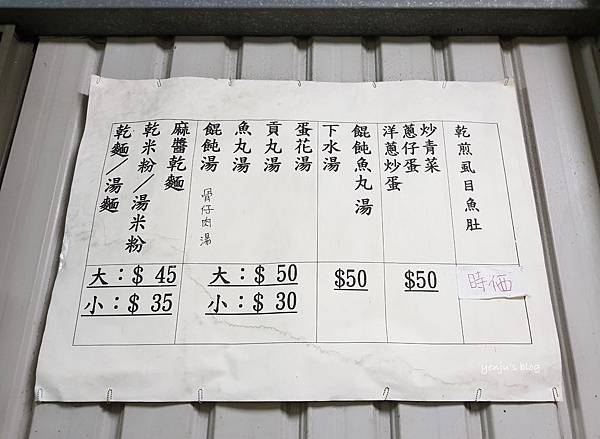 乾煎虱目魚肚
時価
炒青菜
蔥仔蛋
洋蔥炒蛋
$50
餛飩魚丸湯
下水湯
$50
蛋花湯
貢丸湯
魚丸湯
餛飩湯
骨仔肉湯
大：$ 50
小：$ 30
麻醬乾麵
乾米粉／湯米粉
乾麵／湯麵
大：$ 45
小：$ 35
yenju's blog